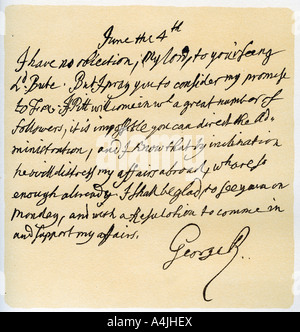 June the 4th
I have no objection, My Lord, to your seeing
Ld. Bute. But I pray you to consider my promise
to Fox. If Pitt will come in wth a great number of
followers, it is impossible you can direct the Ad-
ministration, and I know that by inclination
he will distress my affairs abroad, wh are so
enough already. I shall be glad to see you on
Monday, and with a Resolution to comme in
and support my affairs.
George R.
alamy
A4JHEX